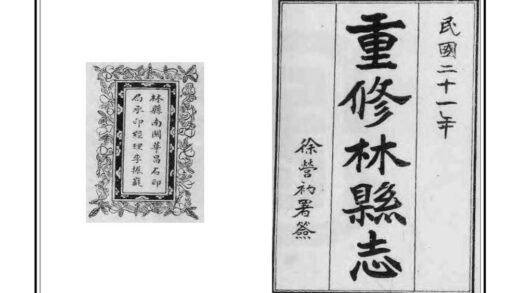 民國二十一年
重修林縣志
徐營礽署簽
林縣南関華昌石印
局承印經理李振嶽